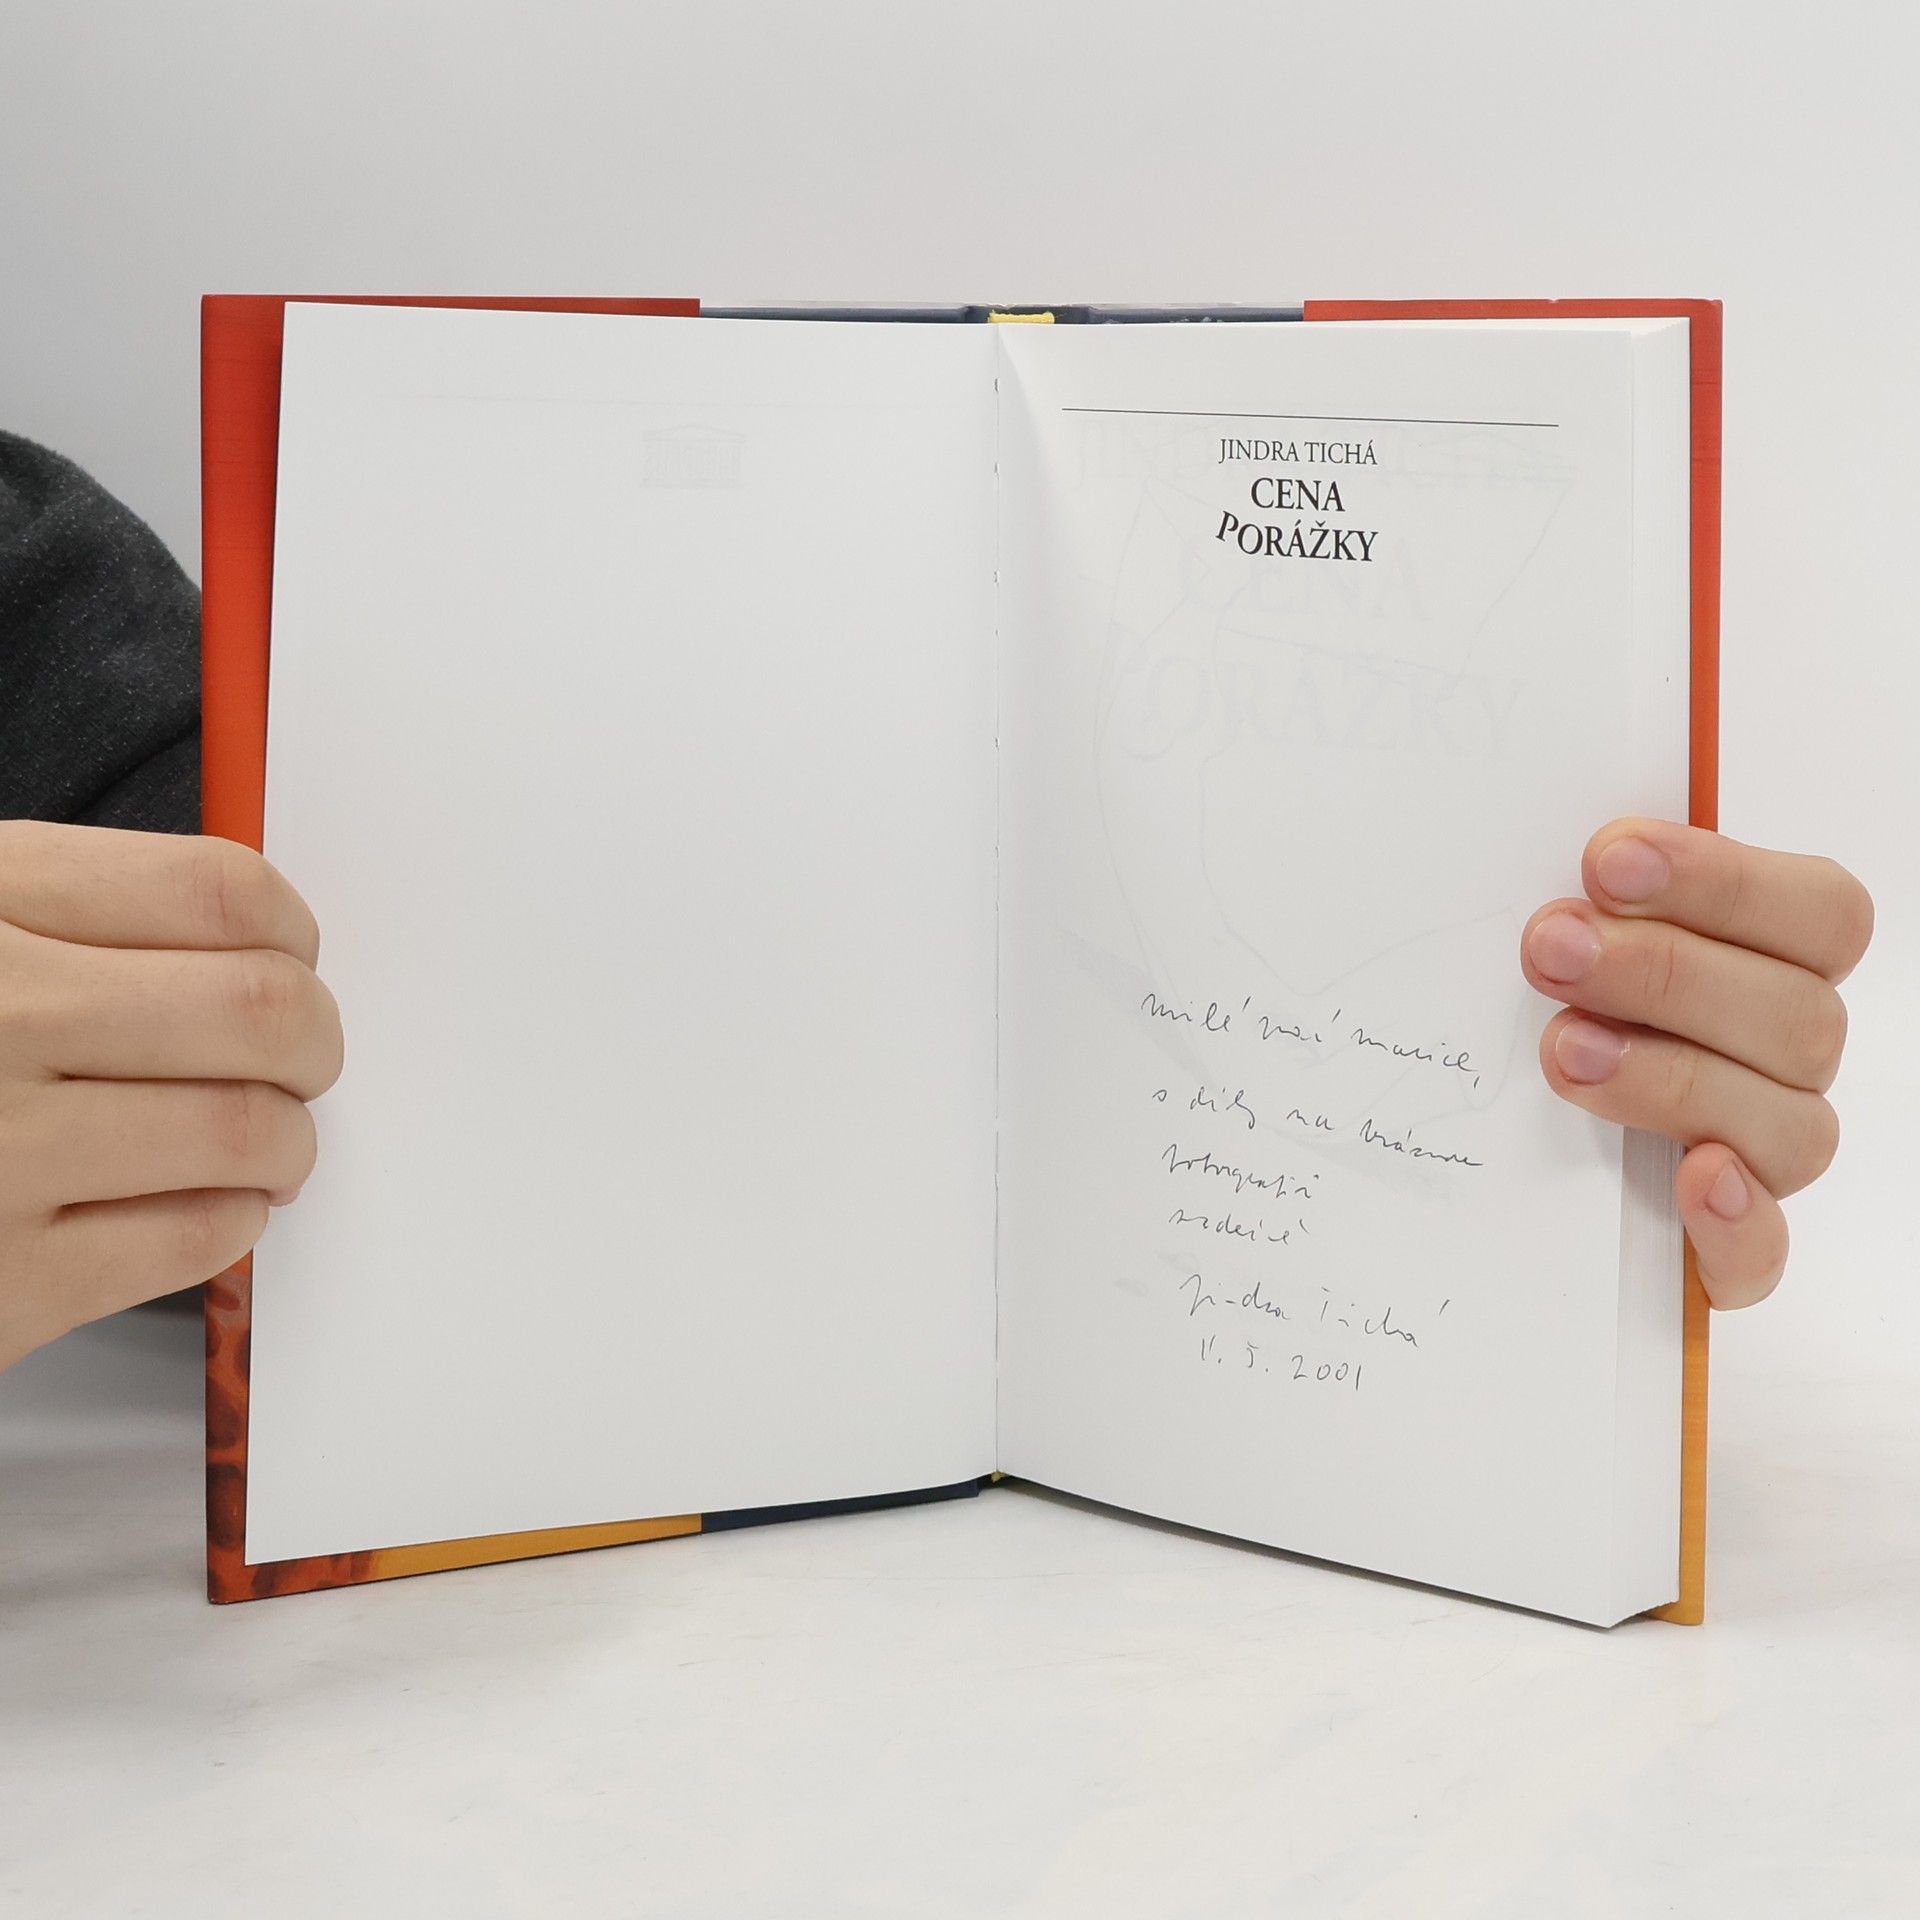 JINDRA TICHÁ
CENA
PORÁŽKY
milé paní Marice,
s díky za krásné
fotografii
srdečně
Jindra Tichá
11. 5. 2001